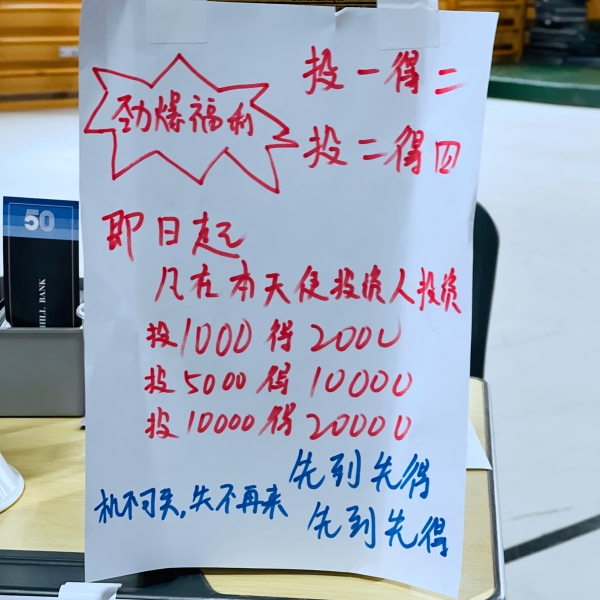 劲爆福利
投一得二
投二得四
即日起
凡在本天使投资人投资
投1000得2000
投5000得10000
投10000得20000
先到先得
机不可失,失不再来
先到先得
50
HILL BANK